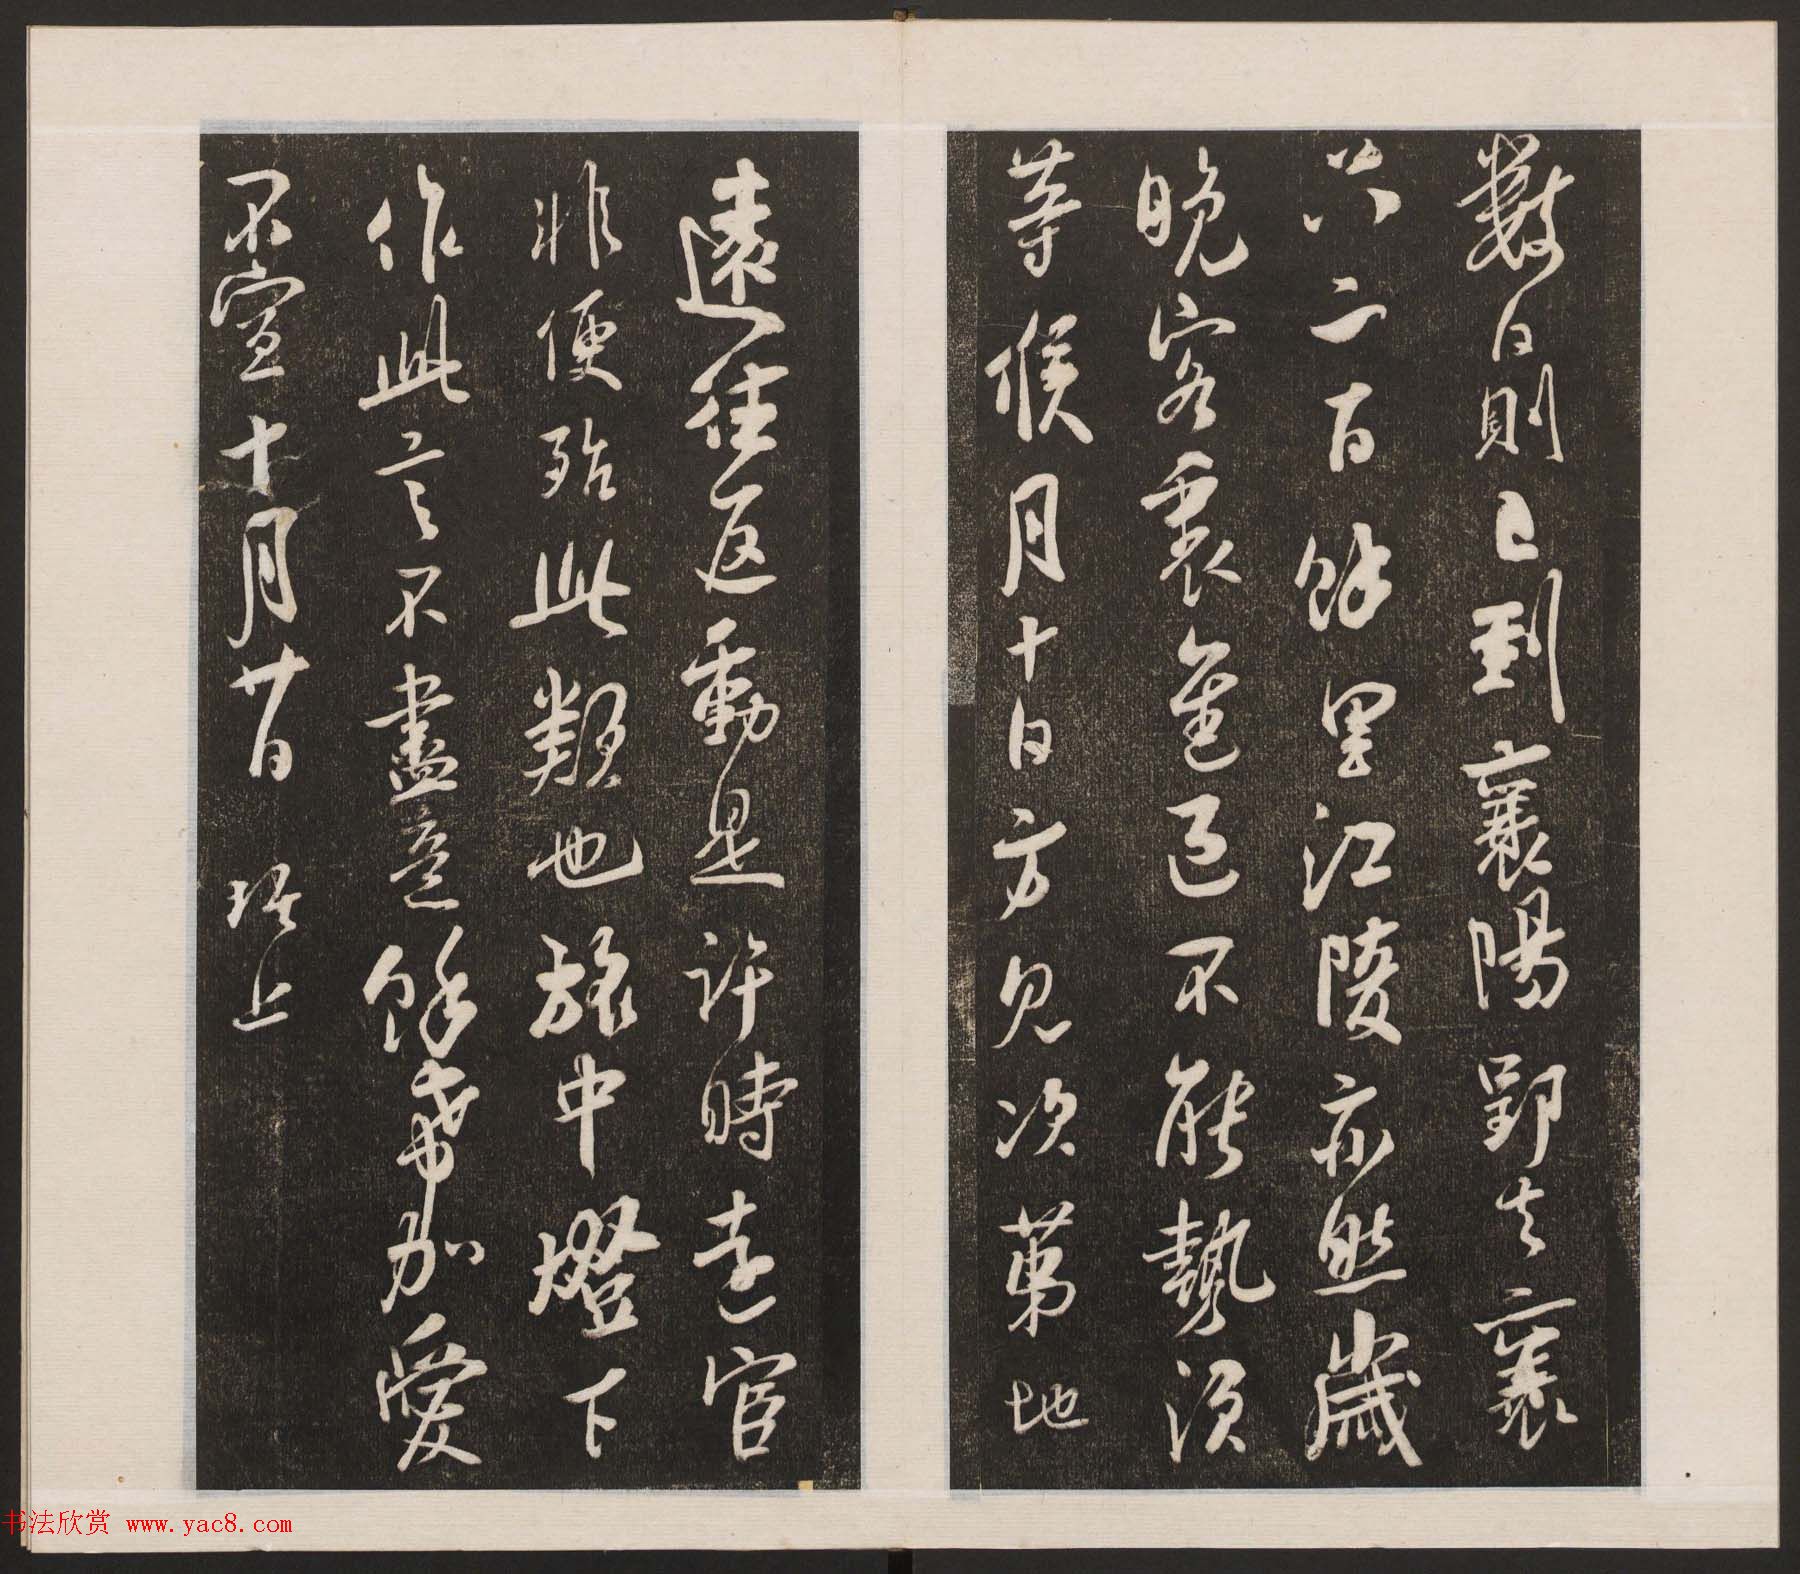 數日則已到襄陽郢去襄
只二百餘里江陵亦然歲
晚客裏雀已不能執須
等候月十日方見次第地
遠往返動是許時遠宦
非便殆此類也旅中燈下
作此言不盡意餘希加愛
不宣十月廿日 上
书法欣赏 www.yac8.com